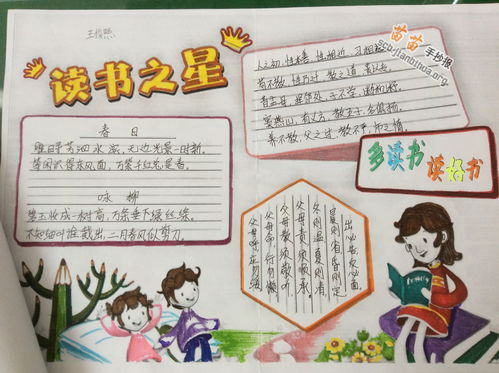 读书之星
春日
胜日寻芳泗水滨,无边光景一时新。
等闲识得东风面,万紫千红总是春。
咏柳
碧玉妆成一树高,万条垂下绿丝绦。
不知细叶谁裁出,二月春风似剪刀。
人之初,性本善,性相近,习相远。
苟不教,性乃迁,教之道,贵以专。
昔孟母,择邻处,子不学,断机杼。
窦燕山,有义方,教五子,名俱扬。
养不教,父之过,教不严,师之惰。
多读书 读好书
父母呼,应勿缓,
父母命,行勿懒。
父母教,须敬听,
父母责,须顺承。
冬则温,夏则凊,
晨则省,昏则定。
出必告,反必面,
苗苗手抄报
scb.jianbihua.org